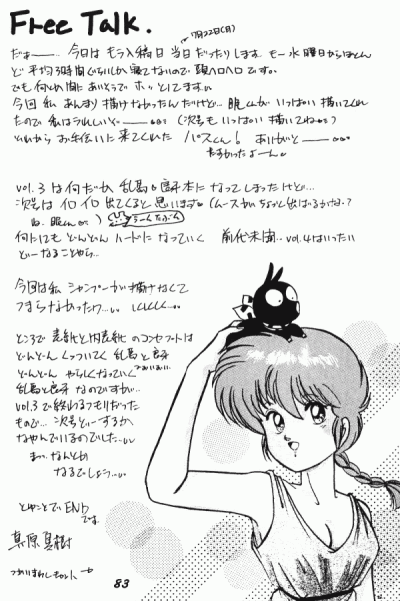 Free Talk.
7月22日(月)
だぁー……今日はもう入稿日当日だったりします もー水曜日からほとん
ど平均3時間ぐらいしか寝てないので頭ヘロヘロです。
でも何とか間にあいそうで ホッとしてます。
今回 私 あんまり描けなかったんだけど… 眠くんが いっぱい描いてくれ
たので 私はうれしいぞー (次号も いっぱい 描いてねー)
それから お手伝いに来てくれた パスくん! ありがとー
たすかったよーん。
vol.3は何だか 乱馬の 本に なってしまったけど…
次号は イロイロ 出てくると 思います (ムースが ちょっと 出ばるかな?
ね、眠くん)
何にしても どんどん ハードになっていく 前代未聞… vol.4はいったい
どーなることやら。
今回は私 シャンプーが描けなくて
つまらなかったワ… しくしく
ところで 表紙と内表紙のコンセプトは
どんどん くっついていく 乱馬と良牙
どんどん やらしくなっていく
乱馬と良牙 なのですが…
vol.3で終わるつもりだった
もので… 次号どーするか
なやんでいるのでした
まっ、なんとか
なるでしょう
とゆことで END
です
真原真樹
83